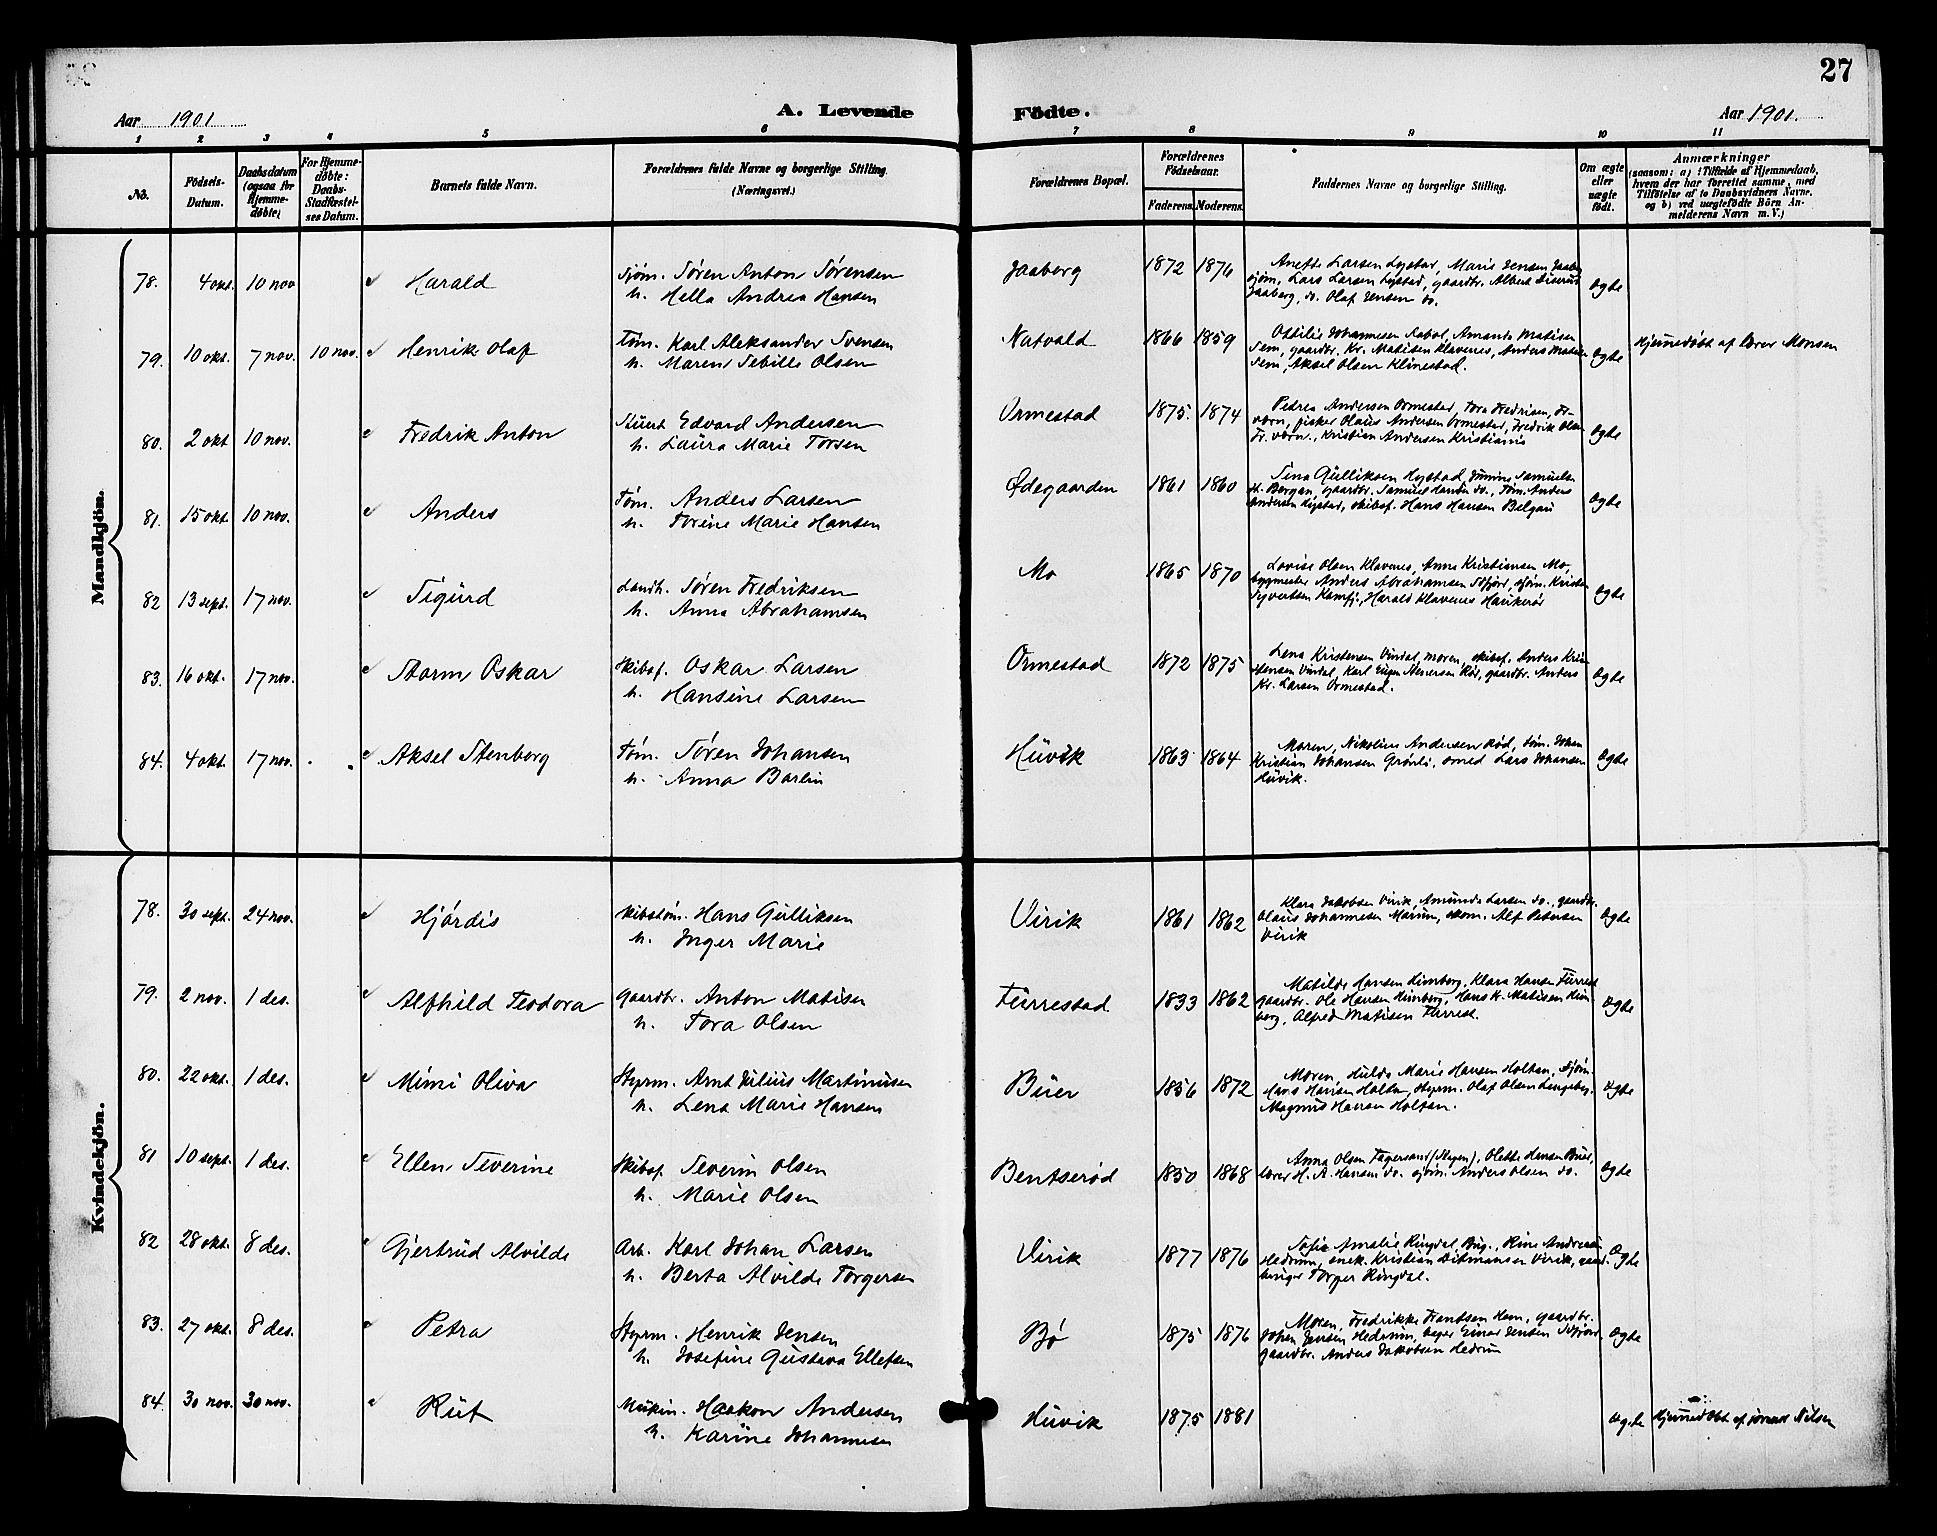 27
Aar 1901
A. Levende
Födte.
Aar 1901.
1 2 3 4 5 6 7 8 9 10 11
No.
Födsels-Datum.
Daabsdatum (ogsaa for Hjemme-døbte)
For Hjemme-døbte: Daabs-Stadfæstel-ses Datum.
Barnets fulde Navn.
Forældrenes fulde Navne og borgerlige Stilling. (Næringsvei.)
Forældrenes Bopæl.
Forældrenes Födselsaar.
Faderens. Moderens.
Faddernes Navne og borgerlige Stilling.
Om ægte eller uægte født.
Anmærkninger
(saasom: a) i Tilfælde af Hjemmedaab,
hvem der har forrettet samme, med
Tilføielse af to Daabsvidners Navne.
og b) ved uægtefødte Börn An-
melderens Navn m. V.)
Mandkjön.
78. 4 okt. 10 nov Harald Sjøm. Søren Anton Sørensen
h. Hella Andrea Hansen
Jaaberg 1872 1876 Anette Larsen Lystad, Marie Jensen Jaaberg
sjøm. Lars Larsen Lystad, gaardbr. Albert
Jaaberg, do. Olaf Jensen do. ægte
79. 10 okt. 7 nov. 10 nov. Henrik Olaf Tøm. Karl Aleksander Svensen
h. Maren Sebille Olsen
Natvald 1866 1859 Ottilie Johannesen, Amanda Matisen
Sem, gaardbr. Kr. Matisen Klavenes, Anders Matisen
Sem, Aksel Olsen Klinestad. ægte Hjemmedøbt af lærer Monsen
80. 2 okt 10 nov. Fredrik Anton Stuert Edvard Andersen
h. Laura Marie Torsen
Ormestad 1875. 1874 Petrea Andersen Ormestad, Tora Fredriksen, Fr-
værn, fisker Olaus Andersen Ormestad, Fredrik Olsen
Fr. værn., Kristian Andersen Kristiania ægte
81. 15 okt. 10 nov. Anders Tøm. Anders Larsen
h. Torine Marie Hansen
Ødegaarden 1861 1860 Sina Gulliksen Hystad, Samuelsen
Bergan, gaardbr. Samuel Hansen do., Tøm. Anders
Andersen Lystad, skibsf. Hans Hansen ægte
82 13 sept. 17 nov. Sigurd Landh. Søren Fredriksen
h. Anna Abrahamsen
Mo 1865 1870 Lovise Olsen Klavenes, Anna Kristiansen Mo,
bygmester Anders Abrahamsen Sfjord, sjøm. Kristen
Syvertsen Kamfj., Harald Klavenes Haukerød ægte
83. 16 okt. 17 nov. Storm Oskar Skibsf. Oskar Larsen
h. Hansine Larsen
Ormestad 1872 1875 Lena Kristensen Vindal, moren, skibsf. Anders Kri-
stensen Vindal, Karl Eugen Stenersen Rør, gaardbr. Anders
Kr. Larsen Ormestad. ægte
84. 4 okt. 17 nov. Aksel Stenberg Tøm. Søren Johansen
h. Anna Barlin
Huvik 1863 1864 Moren, Nikoline Andersen Rød, tøm. Johan
Kristian Johansen Grønli, smed Lars Johansen
Huvik. ægte
Kvindekjön.
78. 30 sept. 24 nov. Hjørdis skibstøm. Hans Gulliksen
h. Inger Marie
Virik 1861 1862 Klara Jakobsen Virik, Amunda Larsen do., gaardbr.
Olaus Johannesen Marum, skom. Alf Petersen
Virik ægte
79. 2 nov. 1 des. Alfhild Teodora gaardbr. Anton Matisen
h. Tora Olsen
Furrestad 1833 1862 Matilde Hansen Himberg, Klara Hansen Furrest
gaardbr. Ole Hansen Himberg, Hans K. Matisen Him-
berg, Alfred Matisen Furrest. ægte
80. 22 okt. 1 des. Mimi Oliva Styrm. Arnt Julius Martinusen
h. Lena Marie Hansen
Buer 1856 1872 Moren, Hulda Marie Hansen Holtan, Sjøm.
Hans Hansen Holtan, styrm. Olaf Olsen Lingelsrg.
Magnus Hansen Holtan. ægte
81 10 sept. 1 des. Ellen Severine Skibsf. Severin Olsen
h. Marie Olsen
Bentserød 1850 1868 Anna Olsen Fagersand (Skogen), Olette Hansen Buer,
lærer H. A. Hansen do. sjøm. Anders Olsen do. ægte
82 28 okt. 8 des. Gjertrud Alvilde Arb. Karl Johan Larsen
h. Berta Alvilde Torgersen
Virik 1877 1876 Sofie Amalie Ringdal, Pige, Rine Andersen
Hedrum, snek. Kristian Ditmansen Virik, gaard-
bruger Torger Ringdal. ægte
83. 27 okt. 8 des. Petra Styrm. Henrik Jensen
h. Josefine Gustava Ellefsen
Bø 1875 1876 Moren, Fredrikke Frantsen Hem, gaardbr.
Johan Jensen Hedrum, bager Einar Jensen Sfjord
gaardbr. Anders Jakobsen Hedrum ægte
84. 30 nov. 30 nov. Rut Maskin. Haakon Andersen
h. Karine Johannesen
Huvik 1875 1881 ægte Hjemmedøbt af jormor Nilsen